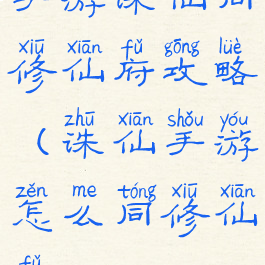 手游诛仙同
xiū xiān fǔ gōng lüè
修仙府攻略
zhū xiān shǒu yóu
（诛仙手游
zěn me tóng xiū xiān
怎么同修仙
fǔ